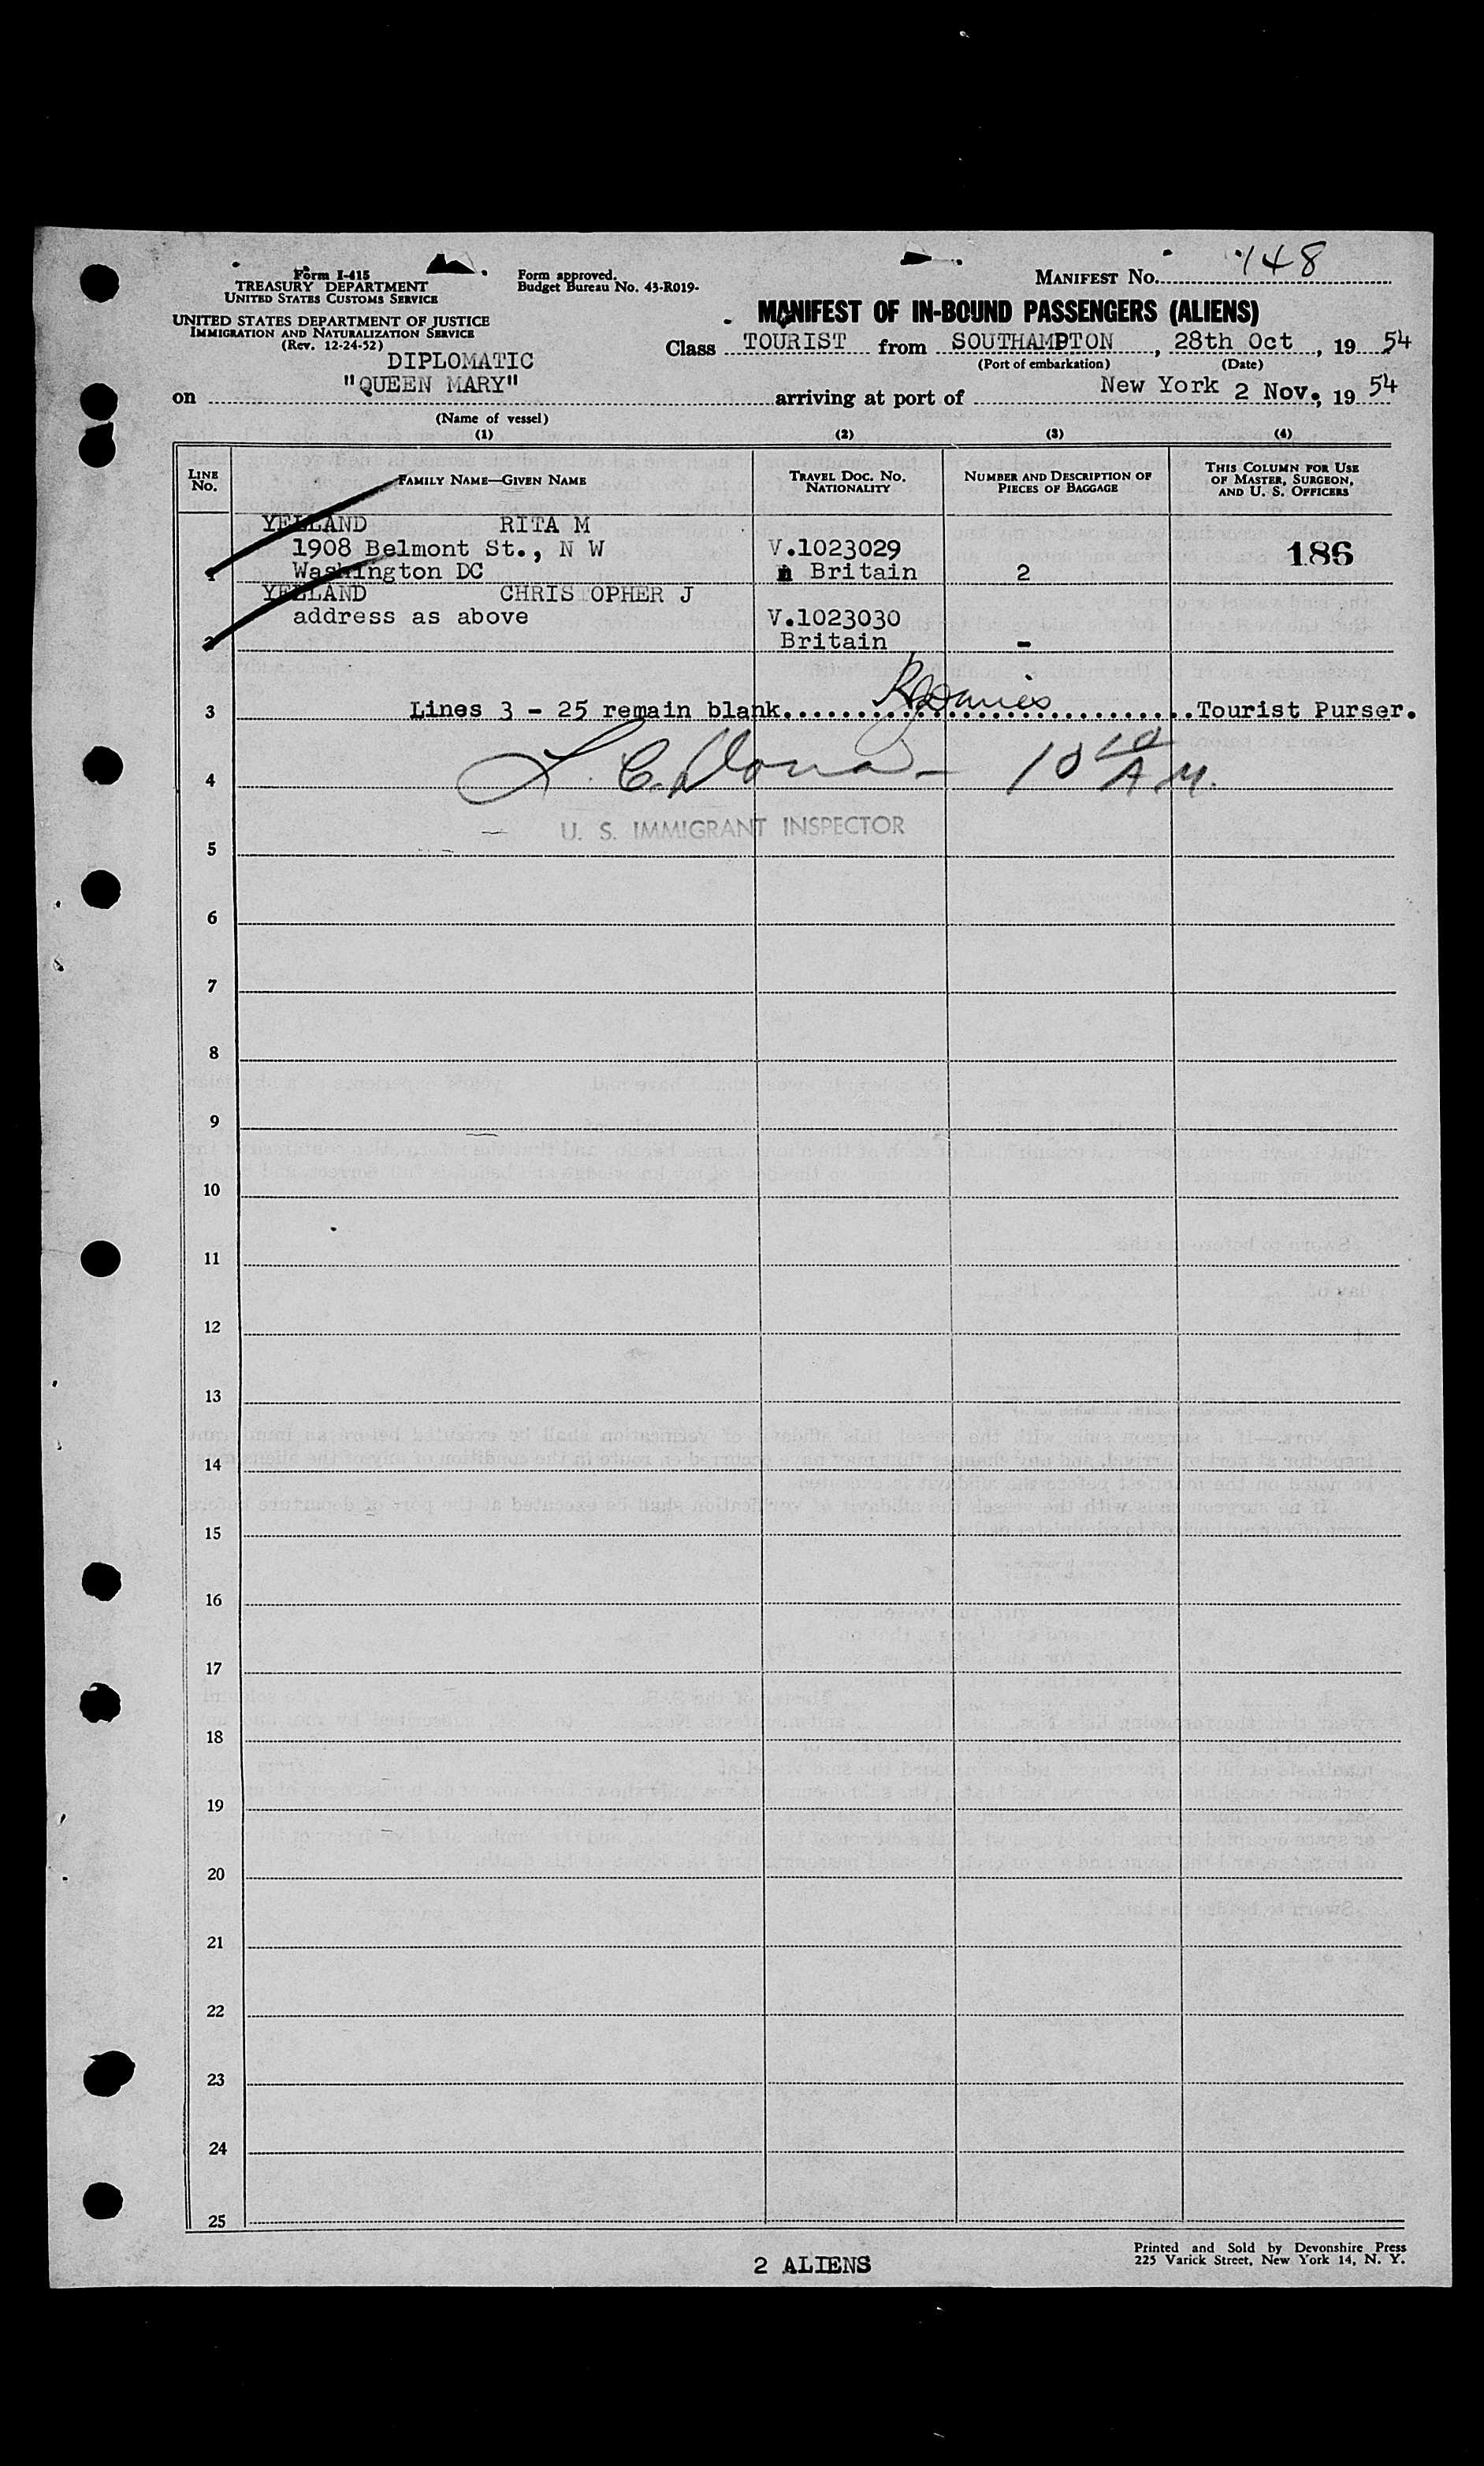 Form I-415
TREASURY DEPARTMENT
UNITED STATES CUSTOMS SERVICE
UNITED STATES DEPARTMENT OF JUSTICE
IMMIGRATION AND NATURALIZATION SERVICE
(Rev. 12-24-52)
Form approved.
Budget Bureau No. 43-R019-
MANIFEST No. 148
MANIFEST OF IN-BOUND PASSENGERS (ALIENS)
DIPLOMATIC
Class TOURIST from SOUTHAMPTON, 28th Oct, 19 54
(Port of embarkation) (Date)
on "QUEEN MARY" arriving at port of New York 2 Nov., 19 54
(Name of vessel)
(1) (2) (3) (4)
LINE No. FAMILY NAME—GIVEN NAME TRAVEL DOC. NO. NATIONALITY NUMBER AND DESCRIPTION OF PIECES OF BAGGAGE THIS COLUMN FOR USE OF MASTER, SURGEON, AND U. S. OFFICERS
YELLAND RITA M
1908 Belmont St., N W V.1023029 186
1 Washington DC Britain 2
YELLAND CHRISTOPHER J
address as above V.1023030
2 Britain -
3 Lines 3 - 25 remain blank. Tourist Purser.
4 10 10 A.M.
U. S. IMMIGRANT INSPECTOR
5
6
7
8
9
10
11
12
13
14
15
16
17
18
19
20
21
22
23
24
25
2 ALIENS
Printed and Sold by Devonshire Press
225 Varick Street, New York 14, N. Y.